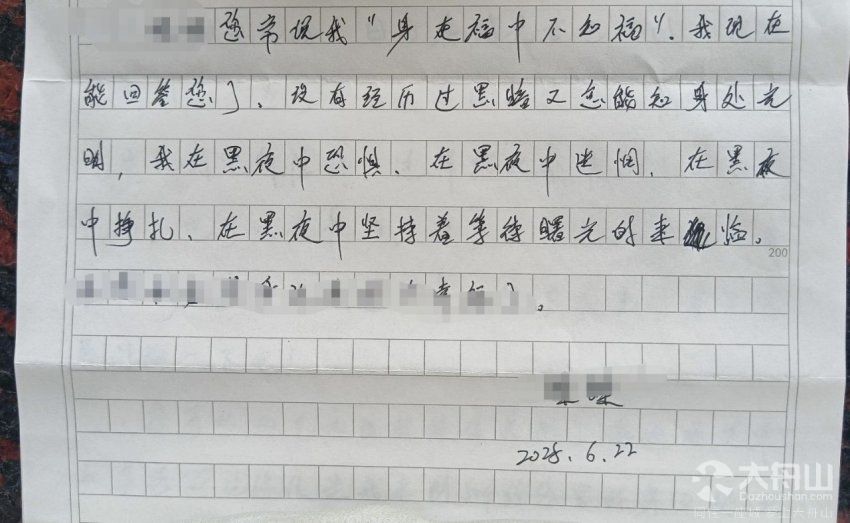 您常说我“身在福中不知福”。我现在
能回答您了、没有经历过黑暗又怎能知身处光
明，我在黑夜中恐惧、在黑夜中迷惘、在黑夜
中挣扎、在黑夜中坚持着等待曙光的来临。
200
。
2025.6.22
大舟山
Dazhoushan.com
同住一座城 爱上大舟山